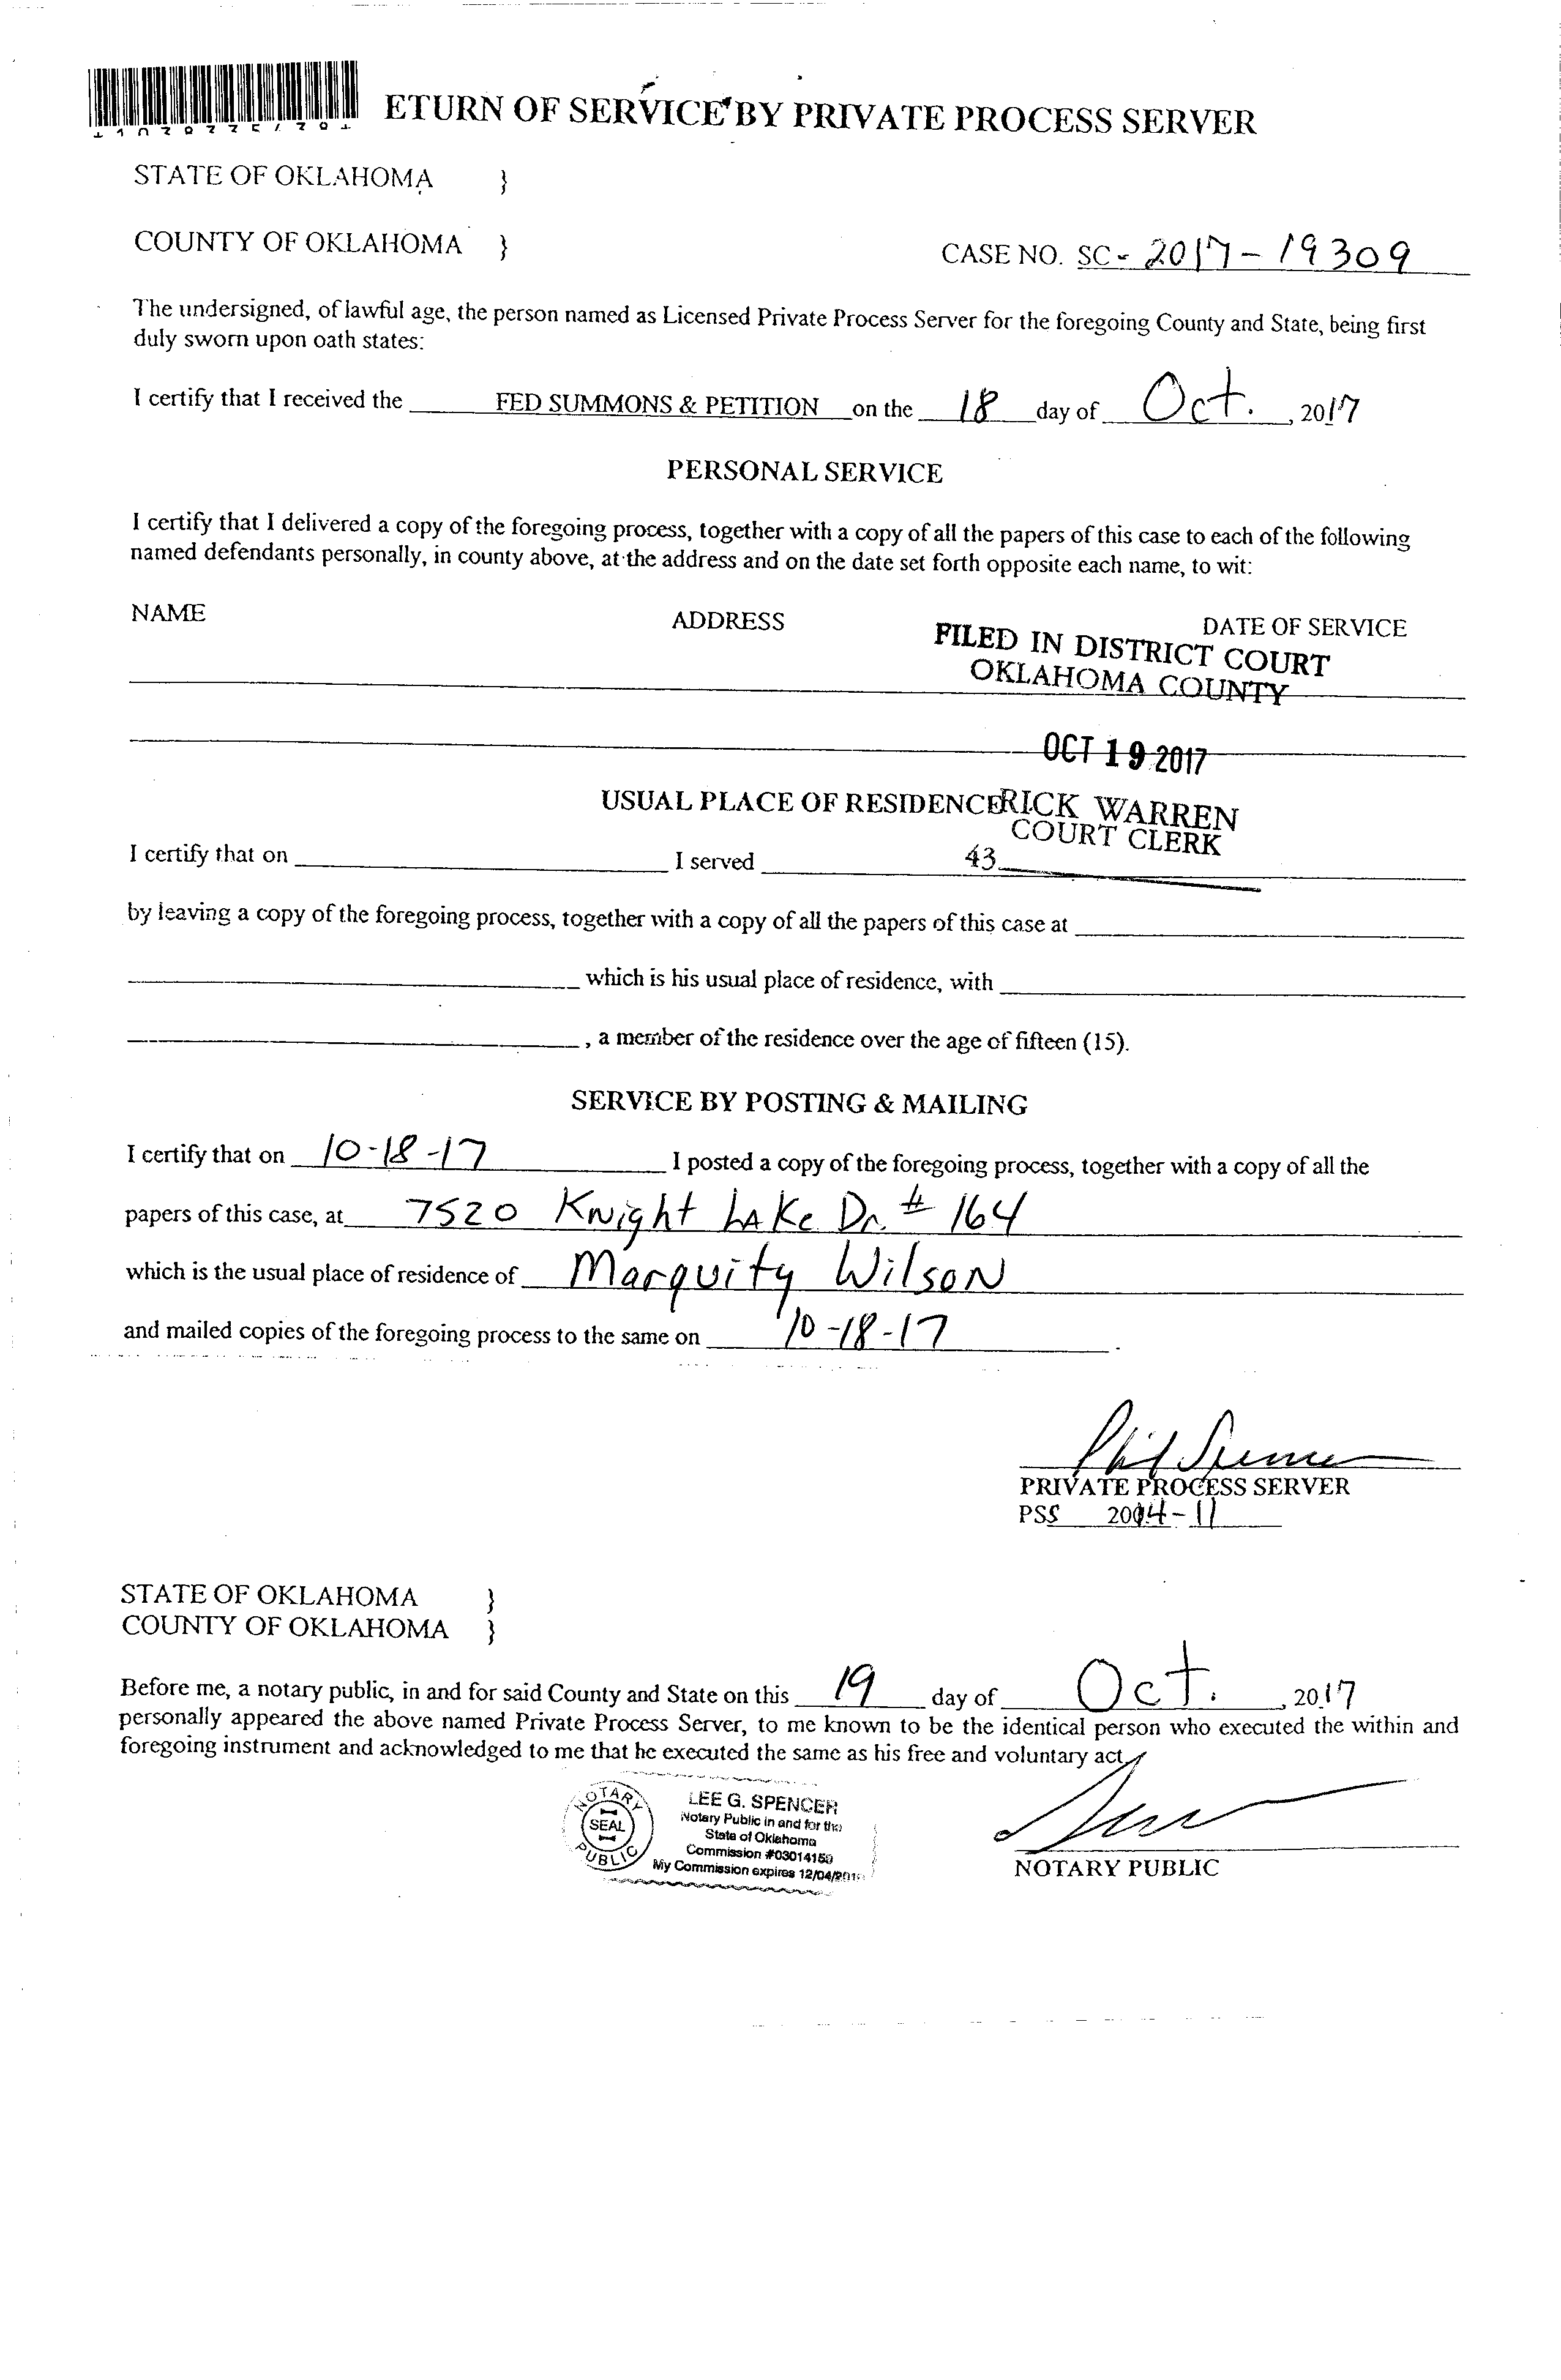 ETURN OF SERVICE BY PRIVATE PROCESS SERVER
STATE OF OKLAHOMA }
COUNTY OF OKLAHOMA }
CASE NO. SC - 2017-19309
The undersigned, of lawful age, the person named as Licensed Private Process Server for the foregoing County and State, being first
duly sworn upon oath states:
I certify that I received the FED SUMMONS & PETITION on the 18 day of Oct. , 2017
PERSONAL SERVICE
I certify that I delivered a copy of the foregoing process, together with a copy of all the papers of this case to each of the following
named defendants personally, in county above, at the address and on the date set forth opposite each name, to wit:
NAME ADDRESS DATE OF SERVICE
FILED IN DISTRICT COURT
OKLAHOMA COUNTY
OCT 19 2017
USUAL PLACE OF RESIDENCE
RICK WARREN
COURT CLERK
43
I certify that on I served
by leaving a copy of the foregoing process, together with a copy of all the papers of this case at
which is his usual place of residence, with
, a member of the residence over the age of fifteen (15).
SERVICE BY POSTING & MAILING
I certify that on 10-18-17 I posted a copy of the foregoing process, together with a copy of all the
papers of this case, at 7520 Knight Lake Dr. # 164
which is the usual place of residence of Marquity Wilson
and mailed copies of the foregoing process to the same on 10-18-17 .
Phil Spencer
PRIVATE PROCESS SERVER
PSS
STATE OF OKLAHOMA }
COUNTY OF OKLAHOMA }
Before me, a notary public, in and for said County and State on this 19 day of Oct. , 2017
personally appeared the above named Private Process Server, to me known to be the identical person who executed the within and
foregoing instrument and acknowledged to me that he executed the same as his free and voluntary act
NOTARY PUBLIC
SEAL
LEE G. SPENCER
Notary Public in and for the
State of Oklahoma
Commission
My Commission expires
NOTARY PUBLIC